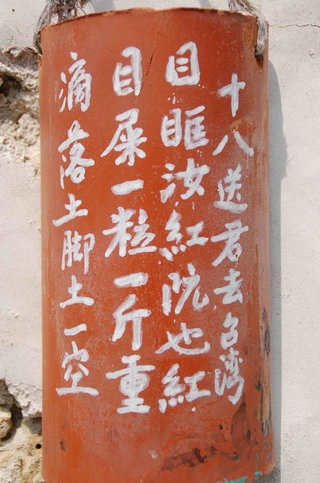 十八送君去台湾
目眶汝紅阮也紅
目屎一粒一斤重
滴落土脚土一空